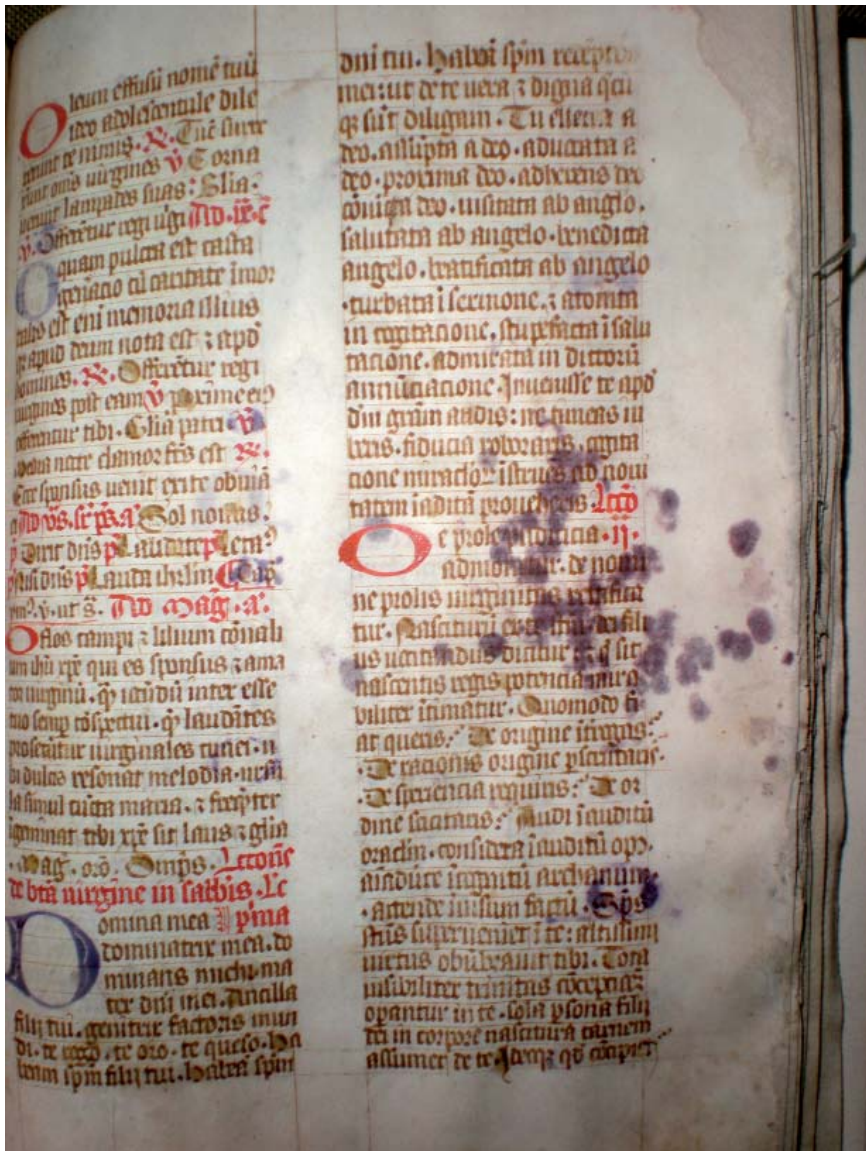 Oleum effusū nomē tuū
ideo adolescentule dile
xerunt te nimis. ℟. Tūc surre
xerunt om̄s uirgines ℣ Et orna
uerunt lampades suas: Glīa.
℣. Offerētur regi ūgi Ad .ix. c̄
O quam pulcra est casta
generacio cū caritate īmor
talis est eni memoria illius
apud deum nota est ⁊ apd̄
homines. ℟. Offerētur regi
uirgines post eam ℣ proxime eiꝰ
offerentur tibi. Glīa patri ℣
Media nocte clamor fc̄s est ℟.
Ecce sponsus uenit exite obuiā
ei Ad vs̄. sr̄ ps̄. a. Sol nomas.
p Dixit dn̄s p Laudate p Leta.
p Nisi dn̄s p Lauda ihrl̄m Cap̄
℣. ut s̄. Ad Mag̅. a.
O flos campi ⁊ lilium cōuali
um ihū xp̄e qui es sponsus ⁊ ama
tor uirginū. qꝫ iocūdū inter esse
tuo semp cōspectui. qꝫ laudātes
prosecūtur uirginales tunei. u
bi dulcis resonat melodia.
la simul cūcta maria. ⁊ freqꝫter
īgeminat tibi xp̄e sit laus ⁊ glīa
. Mag̅. oro. Om̄ps. Lectiōes
de btā uirgine in sabbis. Le
Domina mea pma
dominatrix mea. do
minans michi. ma
ter dn̄i mei. Ancilla
filij tui. genitrix factoris mun
di. te rogo. te oro. te queso. ha
beam spm̄ filij tui. habeā spm̄
dn̄i tui. habeā spm̄ receptoris
mei: ut de te uera ⁊ digna
qꝫ sūt diligam. Tu electa a
deo. assūpta a deo. aduocata a
deo. proxima deo. adherens deo
cōiūcta deo. uisitata ab anglo.
salutata ab angelo. benedicta
angelo. beatificata ab angelo
.turbata ī sermone. ⁊ atonita
in cogitacione. stupefacta ī salu
tacione. admirata in dictorū
annūciacione Inuenisse te apd̄
dm̄ grām audis: ne timeas iu
beris. fiducia roboraris. cogita
cione miraclorꝫ īstrueris ad noui
tatem īaudita proueheris Lecō
De prole pudicicia .ij.
de nomi
ne prolis uirginitas
tur. Nasciturū ex te
us uocitādus dicitur ⁊ qꝫ sit
nascentis regis potencia mira
biliter ītimatur. Quomodo fi
at queris: De origine īterogas:
.De racionis origine pscrutaris.
.De speriencia requiris: De or
dine sciscitaris: Audi īauditū
oraclm̄. considera īauditū op9.
aīaduerte īcognitū archanum.
.attende īuisum factū. Sps̄
scūs supueniet ī te: altissimi
uirtus obūbrauit tibi. Tota
īuisibiliter trinitas cōcepcionē
operantur in te. sola psona filij
dei in corpore nascitura carnem
assumet de te Ideoqꝫ qd̄ cōcipiet